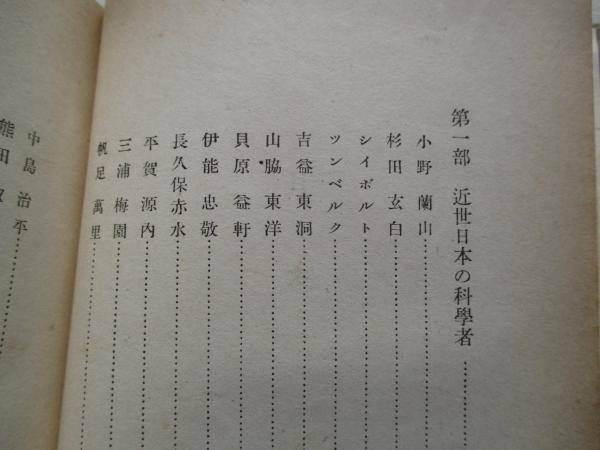 第一部 近世日本の科學者
小野蘭山
杉田玄白
シイボルト
ツンベルク
吉益東洞
山脇東洋
貝原益軒
伊能忠敬
長久保赤水
平賀源内
三浦梅園
帆足萬里
中島治平
熊田